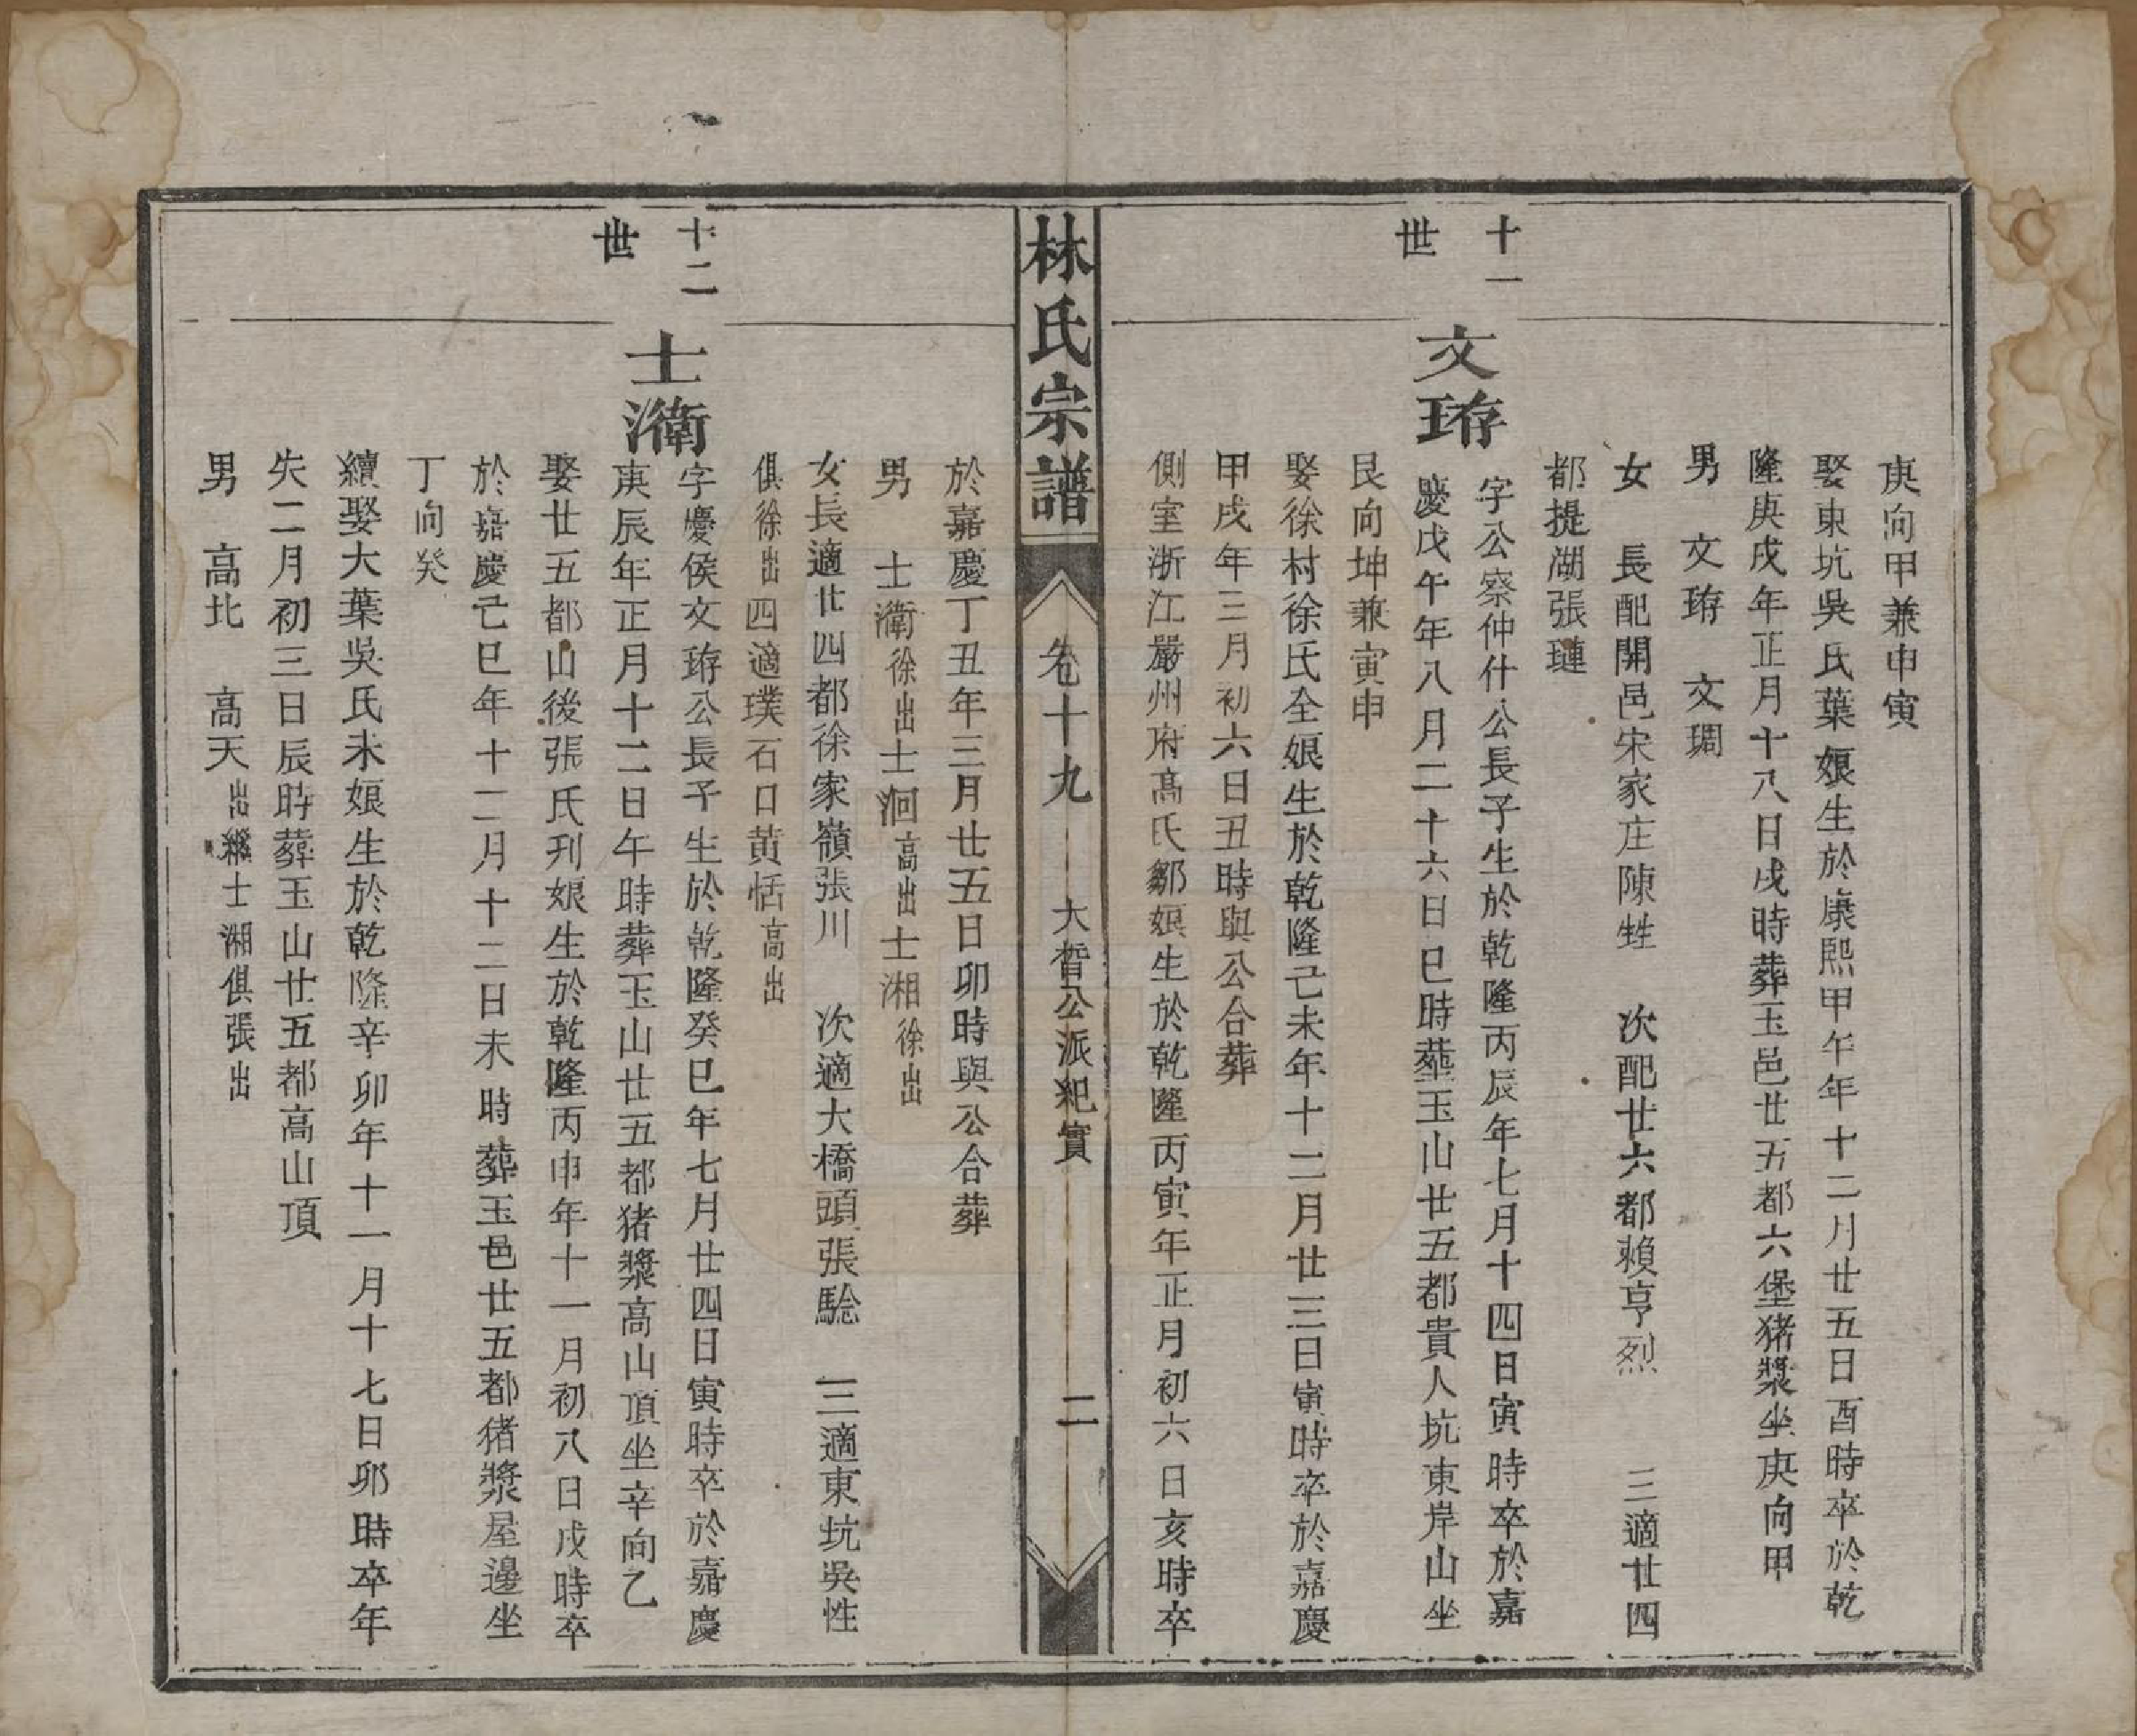 庚向甲兼申寅
娶東坑吳氏葉娘生於康熙甲午年十二月廿五日酉時卒於乾
隆庚戌年正月十八日戌時葬玉邑廿五都六堡猪漿坐庚向甲
男　文㻮　文琱
女　長配開邑宋家庄陳甡　次配廿六都賴亨烈　三適廿四
都提湖張璉
十一世
文㻮
字公察仲什公長子生於乾隆丙辰年七月十四日寅時卒於嘉
慶戊午年八月二十六日巳時塟玉山廿五都貴人坑東岸山坐
艮向坤兼寅申
娶徐村徐氏全娘生於乾隆己未年十二月廿三日寅時卒於嘉慶
甲戌年三月初六日丑時與公合葬
側室浙江嚴州府高氏鄒娘生於乾隆丙寅年正月初六日亥時卒
林氏宗譜
卷十九　大㫮公派紀實　二
於嘉慶丁丑年三月廿五日卯時與公合葬
男　士㵟徐出士洄高出士湘徐出
女長適廿四都徐家嶺張川　次適大橋頭張騐　三適東坑吳性
俱徐出四適璞石口黃恬高出
十二世
士㵟
字慶侯文㻮公長子生於乾隆癸巳年七月廿四日寅時卒於嘉慶
庚辰年正月十二日午時葬玉山廿五都猪漿高山頂坐辛向乙
娶廿五都山後張氏刋娘生於乾隆丙申年十一月初八日戌時卒
於嘉慶己巳年十二月十二日未時葬玉邑廿五都猪漿屋邊坐
丁向癸
續娶大葉吳氏未娘生於乾隆辛卯年十一月十七日卯時卒年
失二月初三日辰時葬玉山廿五都高山頂
男　高北　高天出繼士湘俱張出